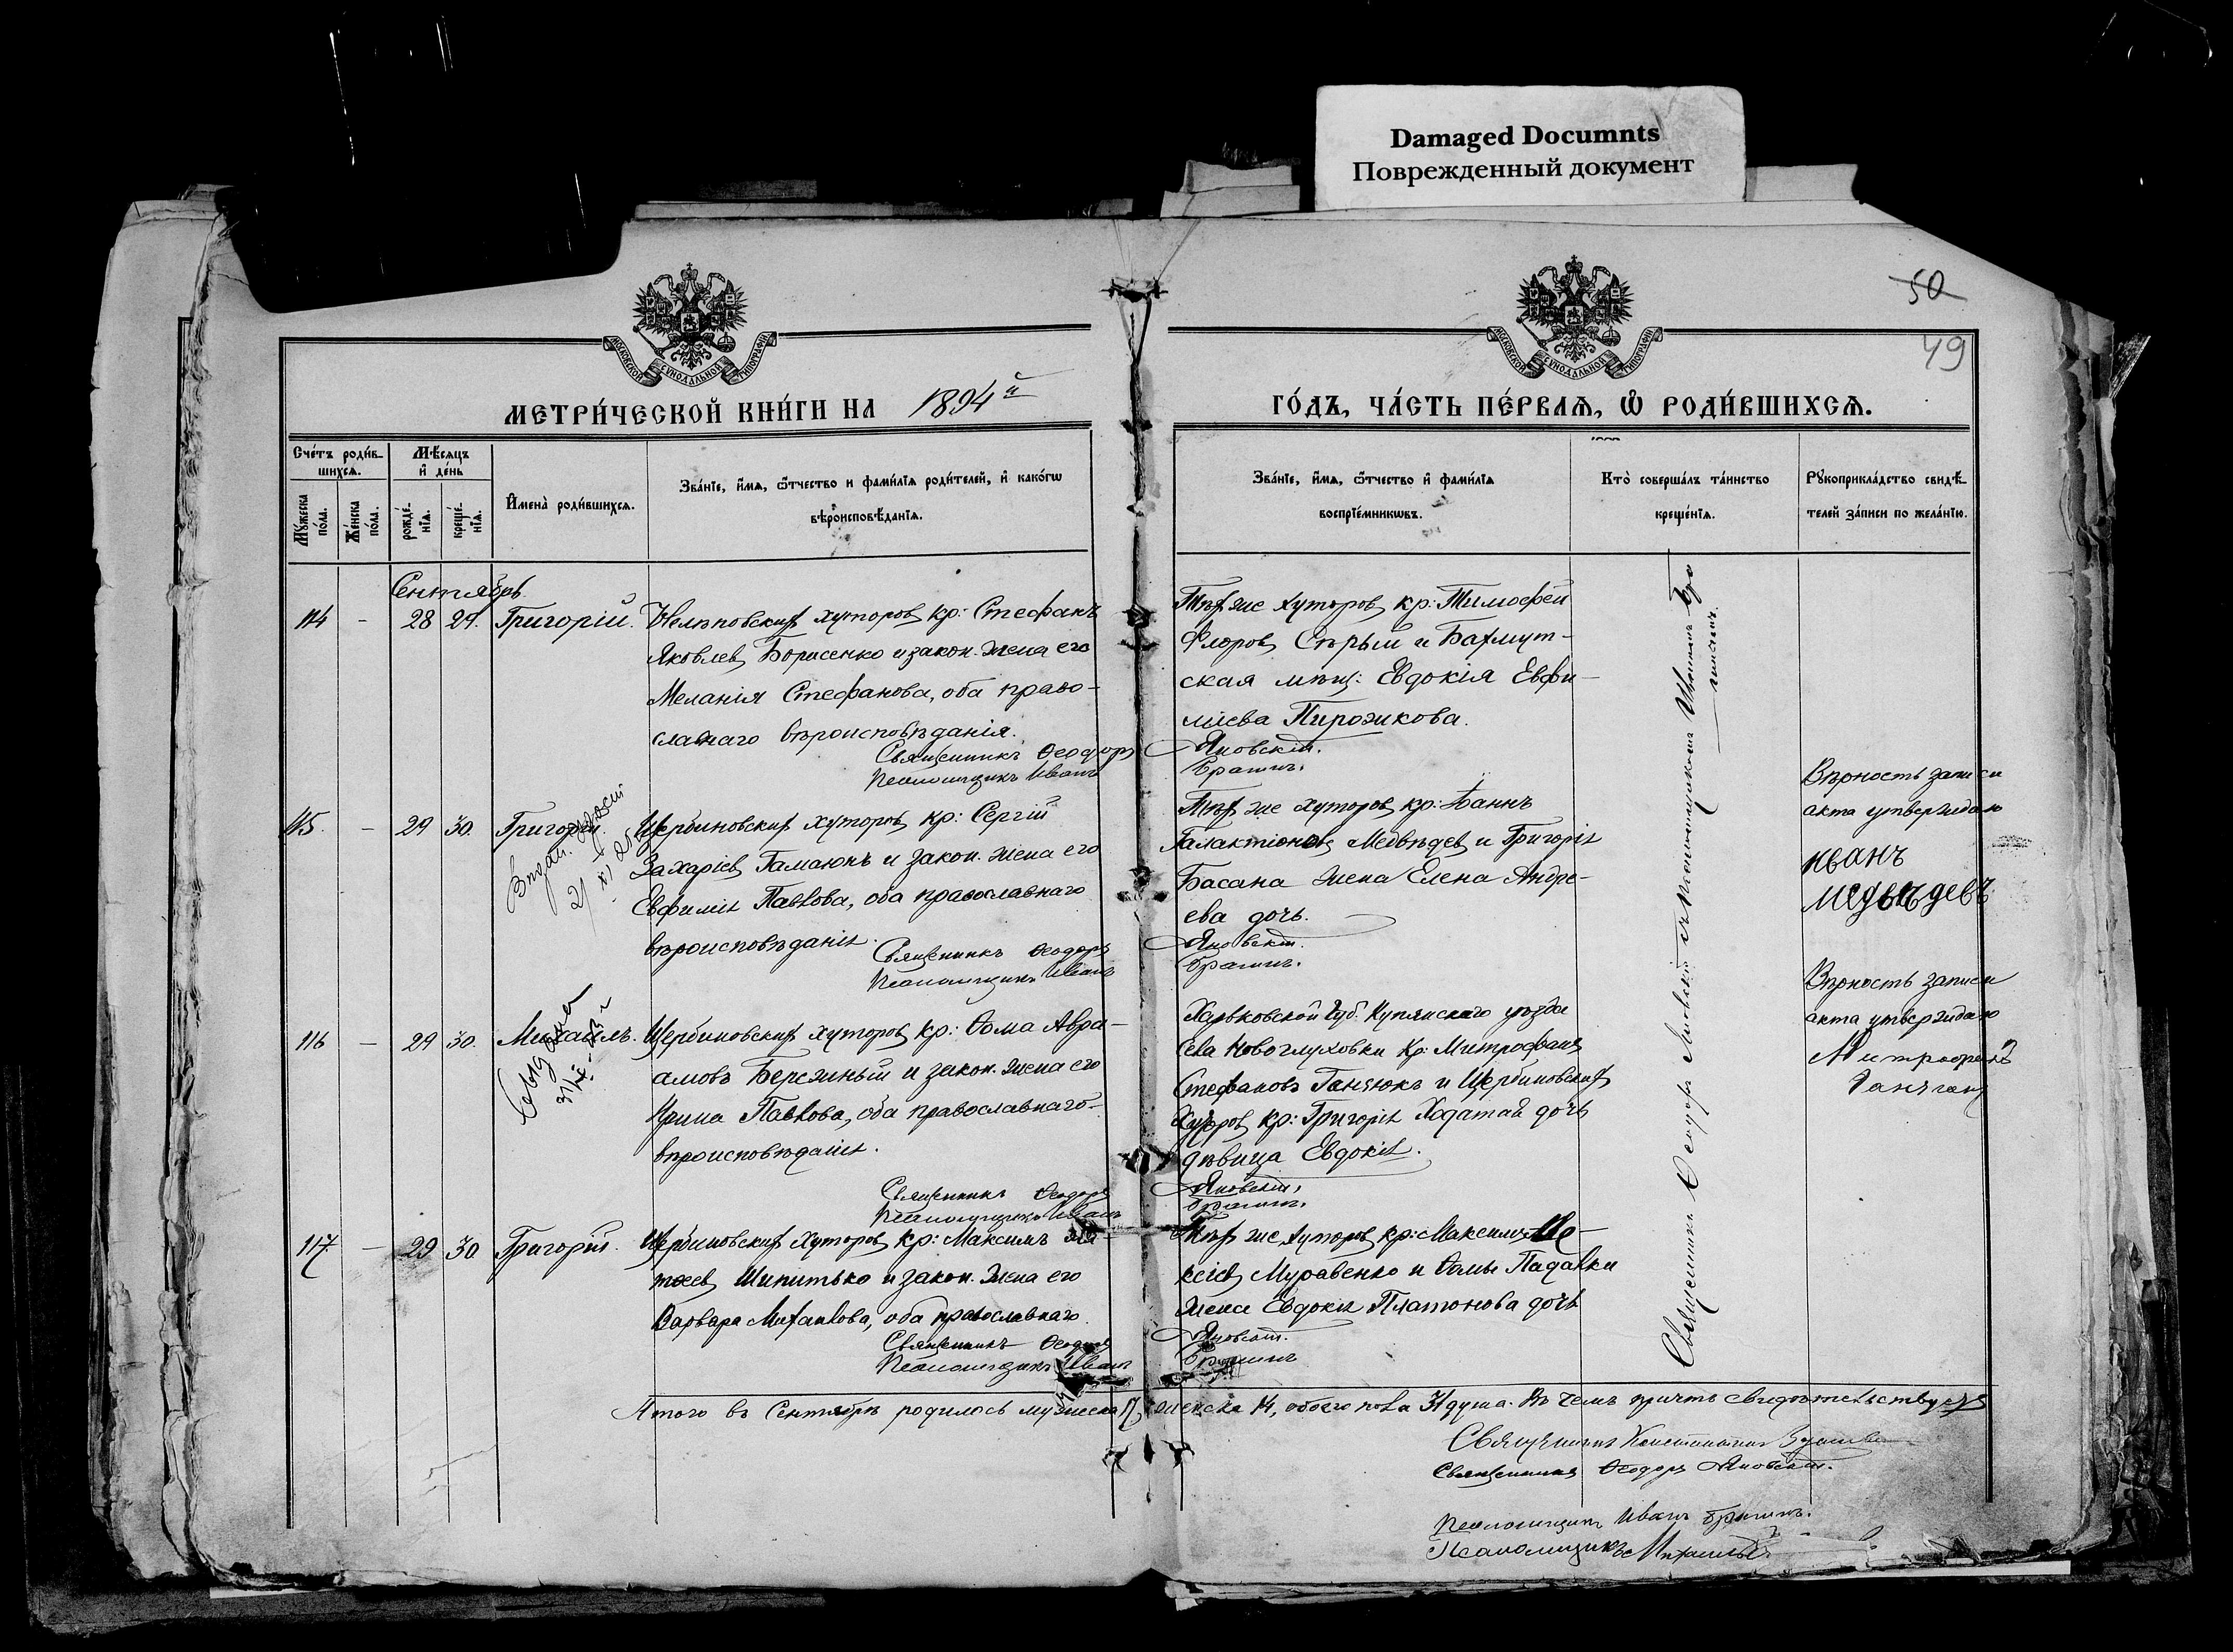 Damaged Documnts
Поврежденный документ
50
49
МОСКОВСКОЙ СѴНОДАЛЬНОЙ ТИПОГРАФІИ
МОСКОВСКОЙ СѴНОДАЛЬНОЙ ТИПОГРАФІИ
МЕТРИ́ЧЕСКОЙ КНИ́ГИ НА 1894й
ГО́ДЪ, ЧА́СТЬ ПЕ́РВАѦ, Ѽ РОДИ́ВШИХСѦ.
Сче́тъ роди́в-
шихсѧ.
Мꙋ́жеска по́ла.
Же́нска по́ла.
Мѣ́сѧцъ
и҆ де́нь
рожде́-
нїѧ.
креще́-
нїѧ.
И҆мена̀ роди́вшихсѧ.
Зва́нїе, и҆́мѧ, ѻ҆́тчество и фами́лїѧ роди́телей, и҆ како́гѡ
вѣроисповѣ́данїѧ.
Зва́нїе, и҆́мѧ, ѻ҆́тчество и҆ фами́лїѧ
воспрїе́мникѡвъ.
Кто̀ соверша́лъ та́инство
креще́нїѧ.
Рꙋкоприкла́дство свидѣ́-
телей за́писи по жела́нїю.
Сентябрь.
114 - 28 29. Григорій. Нелѣповскихъ хуторовъ кр: Стефанъ
Яковлевъ Борисенко и закон. жена его
Меланія Стефанова, оба право-
славнаго вѣроисповѣданія.
Священникъ Ѳеодоръ
Псаломщикъ Иванъ
Тѣхже хуторовъ кр: Тимофей
Флоровъ Сѣрый и Бахмут-
ская мѣщ: Евдокія Евфи-
міева Пирожкова.
Яновскій.
Брагинъ.
115. - 29 30. Григорій. Щербиновскихъ хуторовъ кр: Сергій
Захаріевъ Гамаюнъ и закон. жена его
Евфимія Павлова, оба православнаго
вѣроисповѣданія.
Священникъ Ѳеодоръ
Псаломщикъ Иванъ
Тѣхже хуторовъ кр:
Галактіоновъ Медвѣдевъ и Григорія
Басана жена Елена Андре-
ева дочь.
Яновскій.
Брагинъ.
Вѣрность записи
акта утверждаю
иванъ
медвѣдевъ
116 - 29 30. Михаилъ. Щербиновскихъ хуторовъ кр: Ѳома Авра-
амовъ Бережный и закон. жена его
Ирина Павлова, оба православнаго
вѣроисповѣданія.
Священникъ Ѳеодоръ
Псаломщикъ Иванъ
Харьковской Губ. Купянскаго уѣзда
Села Новоглуховки Кр: Митрофанъ
Стефановъ и Щербиновскихъ
Хуторовъ кр: Григорія Ходатай дочь
дѣвица Евдокія.
Яновскій.
Брагинъ.
Вѣрность записи
акта утверждаю
Митрофанъ
117. - 29 30 Григорій. Щербиновскихъ Хуторовъ кр: Максимъ Ма-
тѳеевъ Шипитько и закон. жена его
Варвара Михайлова, оба православнаго.
Священникъ Ѳеодоръ
Псаломщикъ Иванъ
Тѣхже хуторовъ кр: Максимъ Але-
ксѣевъ Муравенко и Ѳомы Падалки
жена Евдокія Платонова дочь
Яновскій.
Брагинъ
Священникъ Ѳеодоръ Яновскій съ Псаломщикомъ Иваномъ Бра-
гинымъ.
Итого въ Сентябрѣ родилось мужеска 17, женска 14, обоего пола 31 душа. Въ чемъ причтъ свидѣтельствуетъ
Священникъ Константинъ
Священникъ Ѳеодоръ Яновскій.
Псаломщикъ Иванъ Брагинъ.
Псаломщикъ